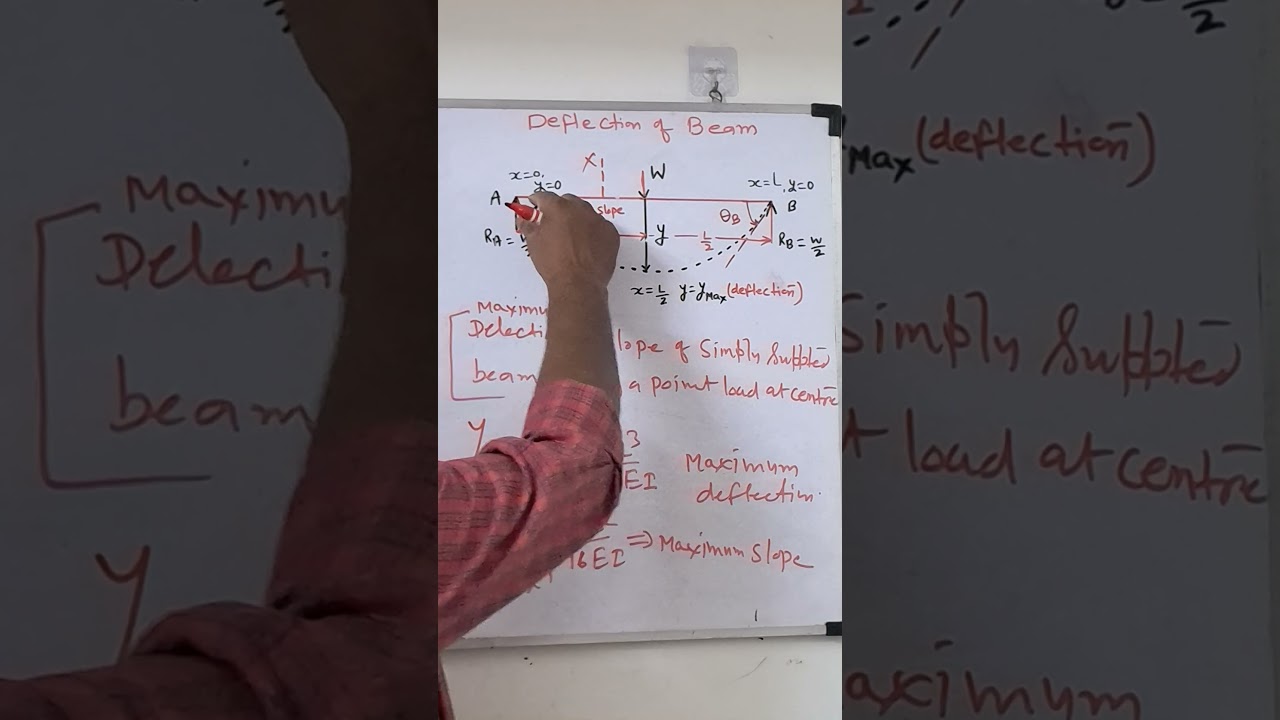 Deflection of Beam
X
W
x=0,
y=0
x=L, y=0
A
slope
θB
B
RA = W/2
y
L/2
RB = W/2
x=L/2 y=yMax (deflection)
Maximu
Delecti lope of Simply Suppted
beam a point load at centre
Y 3
EI Maximum
deflectim.
16EI ⇒ Maximum Slope